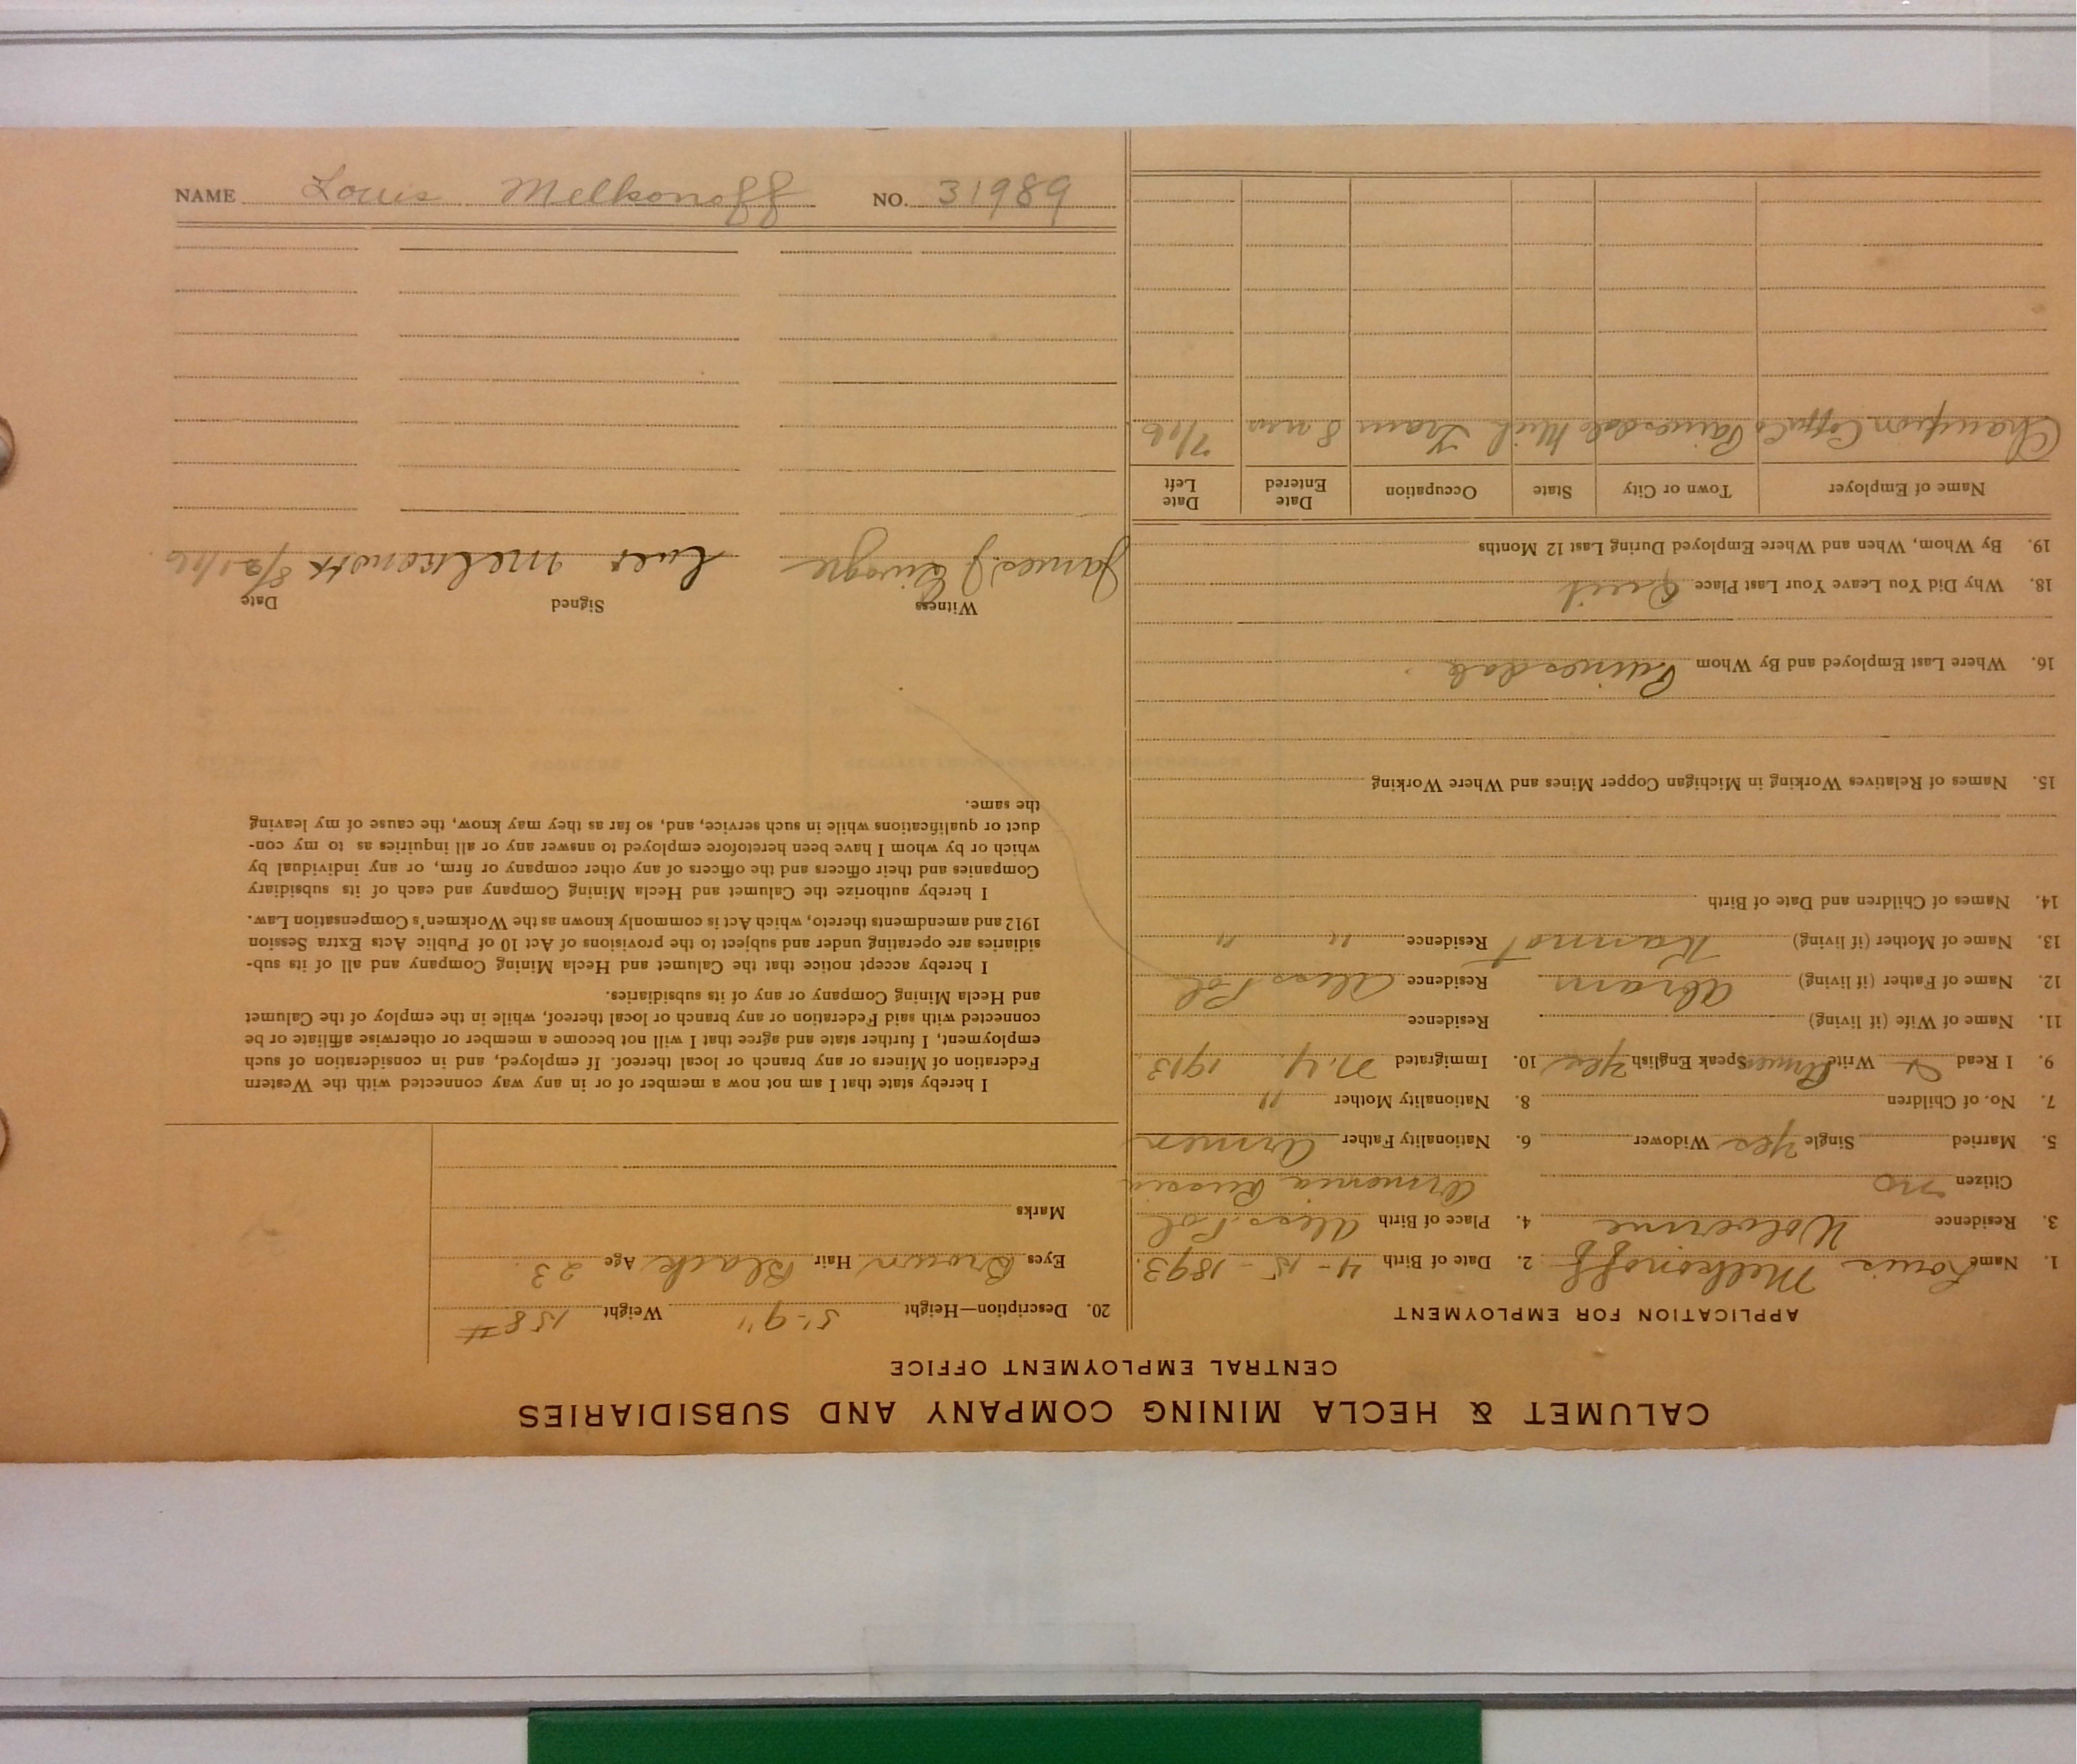 CALUMET & HECLA MINING COMPANY AND SUBSIDIARIES
CENTRAL EMPLOYMENT OFFICE
APPLICATION FOR EMPLOYMENT
1. Name Louis Melkonoff 2. Date of Birth 4-15-1893
3. Residence Wolverine 4. Place of Birth Aless. Pol
Citizen no Armenia Russia
5. Married Single Yes Widower 6. Nationality Father Armen
7. No. of Children 8. Nationality Mother "
9. I Read & Write Armen Speak English Yes 10. Immigrated N.Y. 1913
11. Name of Wife (if living) Residence
12. Name of Father (if living) Abram Residence Aless Pol
13. Name of Mother (if living) Residence " "
14. Names of Children and Date of Birth
15. Names of Relatives Working in Michigan Copper Mines and Where Working
16. Where Last Employed and By Whom Painesdale
18. Why Did You Leave Your Last Place Quit
19. By Whom, When and Where Employed During Last 12 Months
Name of Employer Town or City State Occupation Date Entered Date Left
Champion Copper Co Painesdale Mich Tram 8 mos 7/16
20. Description—Height 5'-9" Weight 158#
Eyes Brown Hair Black Age 23
Marks
I hereby state that I am not now a member of or in any way connected with the Western
Federation of Miners or any branch or local thereof. If employed, and in consideration of such
employment, I further state and agree that I will not become a member or otherwise affiliate or be
connected with said Federation or any branch or local thereof, while in the employ of the Calumet
and Hecla Mining Company or any of its subsidiaries.
I hereby accept notice that the Calumet and Hecla Mining Company and all of its sub-
sidiaries are operating under and subject to the provisions of Act 10 of Public Acts Extra Session
1912 and amendments thereto, which Act is commonly known as the Workmen's Compensation Law.
I hereby authorize the Calumet and Hecla Mining Company and each of its subsidiary
Companies and their officers and the officers of any other company or firm, or any individual by
which or by whom I have been heretofore employed to answer any or all inquiries as to my con-
duct or qualifications while in such service, and, so far as they may know, the cause of my leaving
the same.
Witness Signed Date
James J Luis Melkonoff 8/21/16
NAME Louis Melkonoff NO. 31989